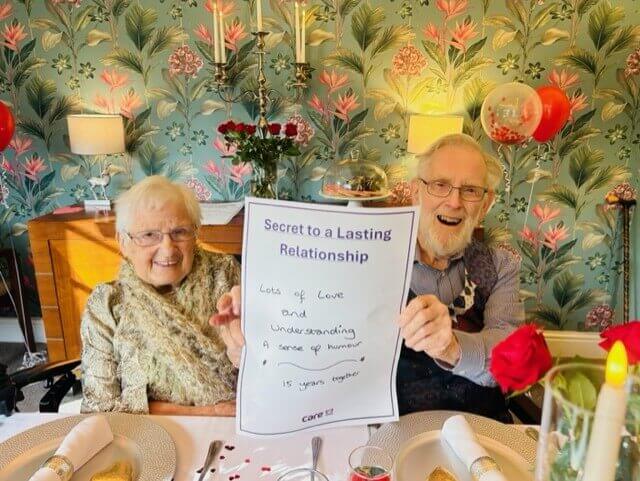 Secret to a Lasting
Relationship
Lots of Love
and
Understanding
A sense of humour
15 years together
care